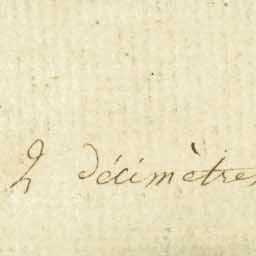 2 décimètres